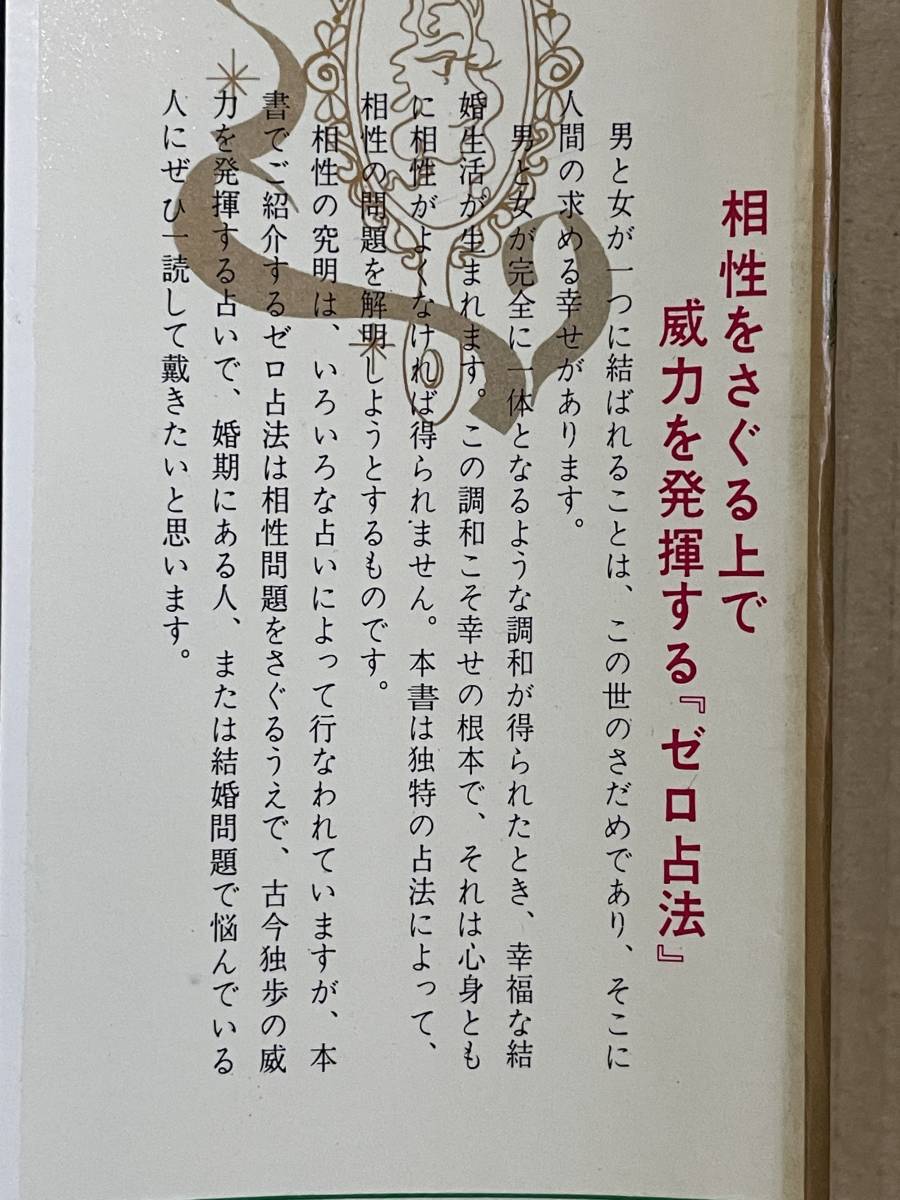 相性をさぐる上で
威力を発揮する『ゼロ占法』
男と女が一つに結ばれることは、この世のさだめであり、そこに
人間の求める幸せがあります。
男と女が完全に一体となるような調和が得られたとき、幸福な結
婚生活が生まれます。この調和こそ幸せの根本で、それは心身とも
に相性がよくなければ得られません。本書は独特の占法によって、
相性の問題を解明しようとするものです。
相性の究明は、いろいろな占いによって行なわれていますが、本
書でご紹介するゼロ占法は相性問題をさぐるうえで、古今独歩の威
力を発揮する占いで、婚期にある人、または結婚問題で悩んでいる
人にぜひ一読して戴きたいと思います。